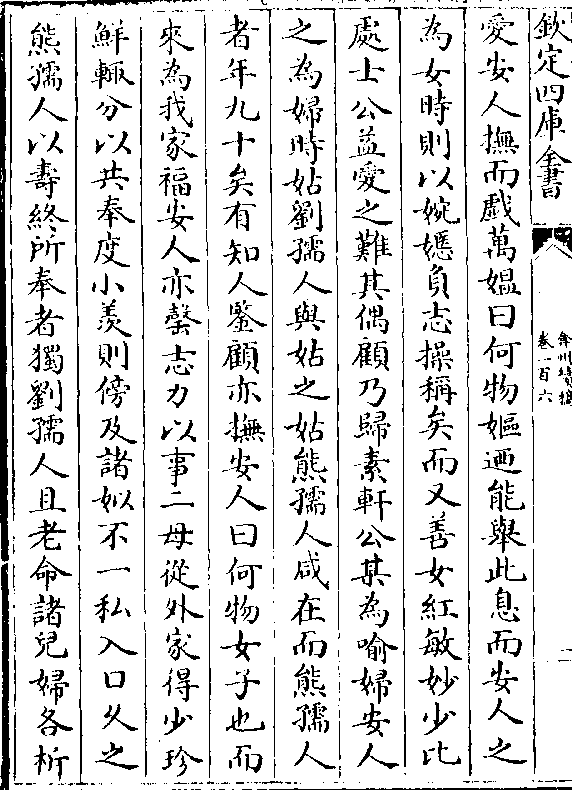 欽定四庫全書
弇州續稿
卷一百六
二
愛安人撫而戲萬媼曰何物嫗迺能舉此息而安人之
為女時則以婉嫕負志操稱矣而又善女紅敏妙少比
處士公益愛之難其偶顧乃歸素軒公其為喻婦安人
之為婦時姑劉孺人與姑之姑熊孺人咸在而熊孺人
者年九十矣有知人鑒顧亦撫安人曰何物女子也而
來為我家福安人亦罄志力以事二母從外家得少珍
鮮輒分以共奉度小羨則傍及諸姒不一私入口久之
熊孺人以壽終所奉者獨劉孺人且老命諸兒婦各析